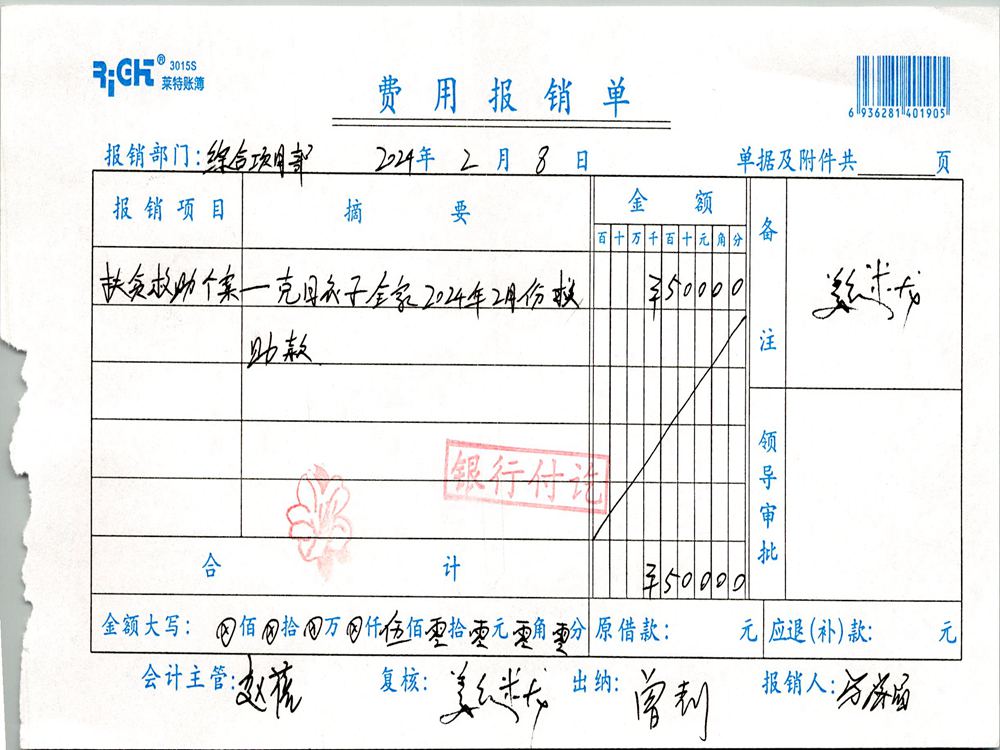 RIGHT® 3015S
莱特账簿
费用报销单
6 936281 401905
报销部门：综合项目部 2024年 2月 8日 单据及附件共 页
报销项目 摘要 金额 备注
百 十 万 千 百 十 元 角 分
扶贫救助个案 一克日衣子全家2024年2月份救 ¥50000
助款
银行付讫
领导审批
合计 ¥50000
金额大写： 佰 拾 万 仟 伍佰 零拾 零元 零角 零分 原借款： 元 应退(补)款： 元
会计主管： 复核： 出纳： 报销人：